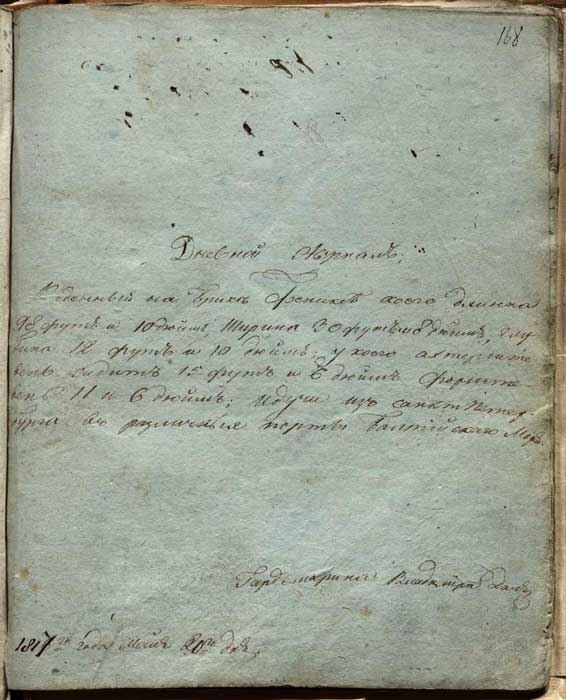 168
Дневной Журналъ;
Веденный на Бриге Фениксе коего длинна
98 футъ и 10 дюймъ, Ширина 30 футъ и 8 дюймъ, глу
бина 12 футъ и 10 дюймъ; у коего ахтерште
вень сидитъ 15 футъ и 6 дюймъ Форште
вень 11 и 6 дюймъ; Идучи изъ Санктъ Петер
бурга въ различныя порты Балтийскаго Моря
Гардемарина Владимiра Даля
1817го года Маiя 20го дня.